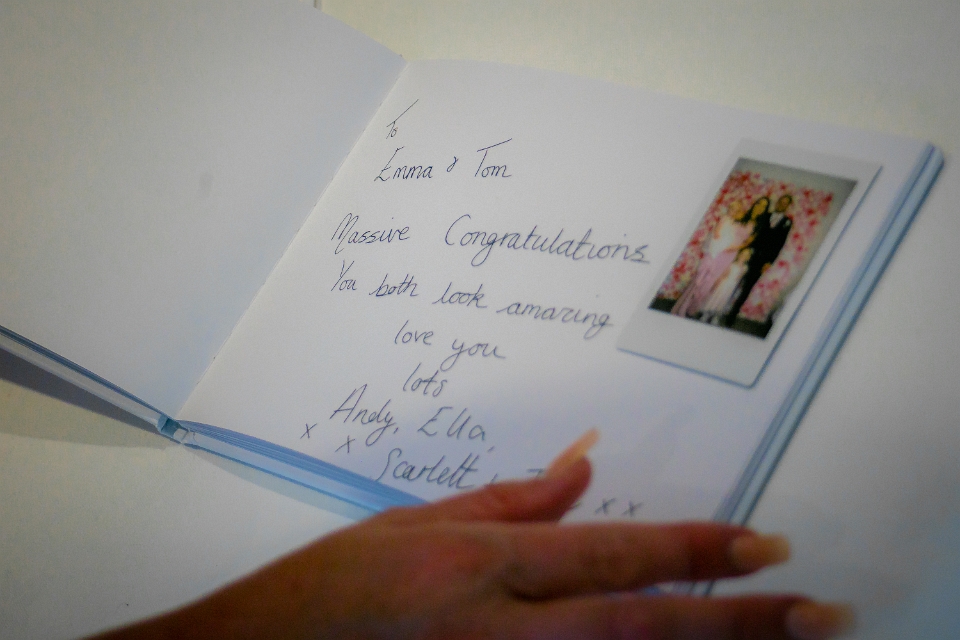 To
Emma & Tom
Massive Congratulations
You both look amazing
love you
lots
Andy, Ella,
x x
Scarlett
x x